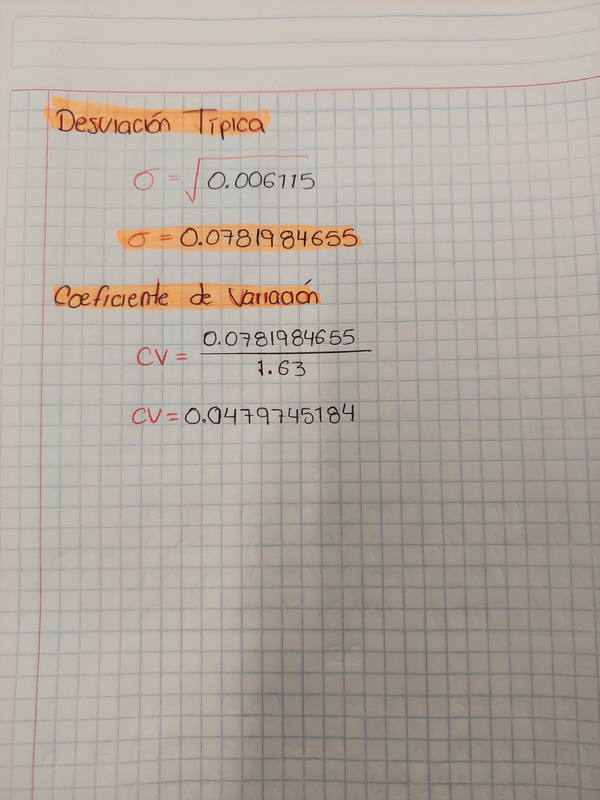 Desviación Típica
σ = √0.006115
σ = 0.0781984655
Coeficiente de Variación
CV = 0.0781984655
1.63
CV = 0.0479745184